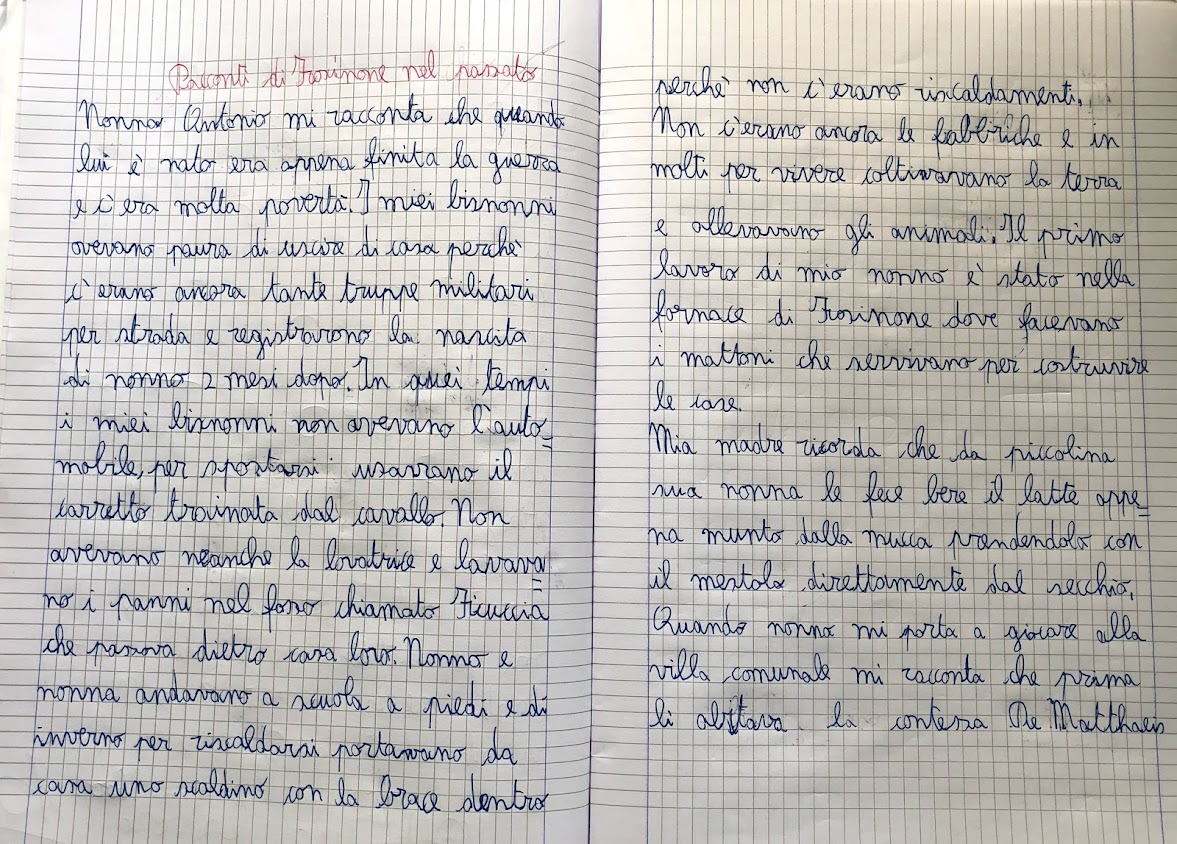 Racconti di Frosinone nel passato
Nonno Antonio mi racconta che quando
lui è nato era appena finita la guerra
e c'era molta povertà. I miei bisnonni
avevano paura di uscire di casa perchè
c'erano ancora tante truppe militari
per strada e registrarono la nascita
di nonno 2 mesi dopo. In quei tempi
i miei bisnonni non avevano l'auto=
mobile, per spostarsi usavano il
carretto trainata dal cavallo. Non
avevano neanche la lavatrice e lavava=
no i panni nel fosso chiamato Ficuccia
che passava dietro casa loro. Nonno e
nonna andavano a scuola a piedi e di
inverno per riscaldarsi portavano da
casa uno scaldino con la brace dentro
perchè non c'erano riscaldamenti.
Non c'erano ancora le fabbriche e in
molti per vivere coltivavano la terra
e allevavano gli animali. Il primo
lavoro di mio nonno è stato nella
fornace di Frosinone dove facevano
i mattoni che servivano per costruire
le case.
Mia madre ricorda che da piccolina
sua nonna le fece bere il latte appe=
na munto dalla mucca prendendolo con
il mestolo direttamente dal secchio.
Quando nonna mi porta a giocare alla
villa comunale mi racconta che prima
li abitava la contessa De Matthaeis